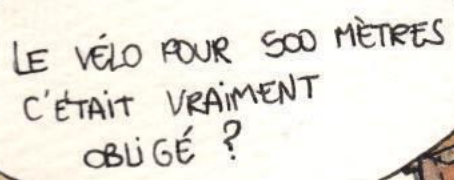 LE VÉLO POUR 500 MÈTRES
C'ÉTAIT VRAIMENT
OBLIGÉ ?